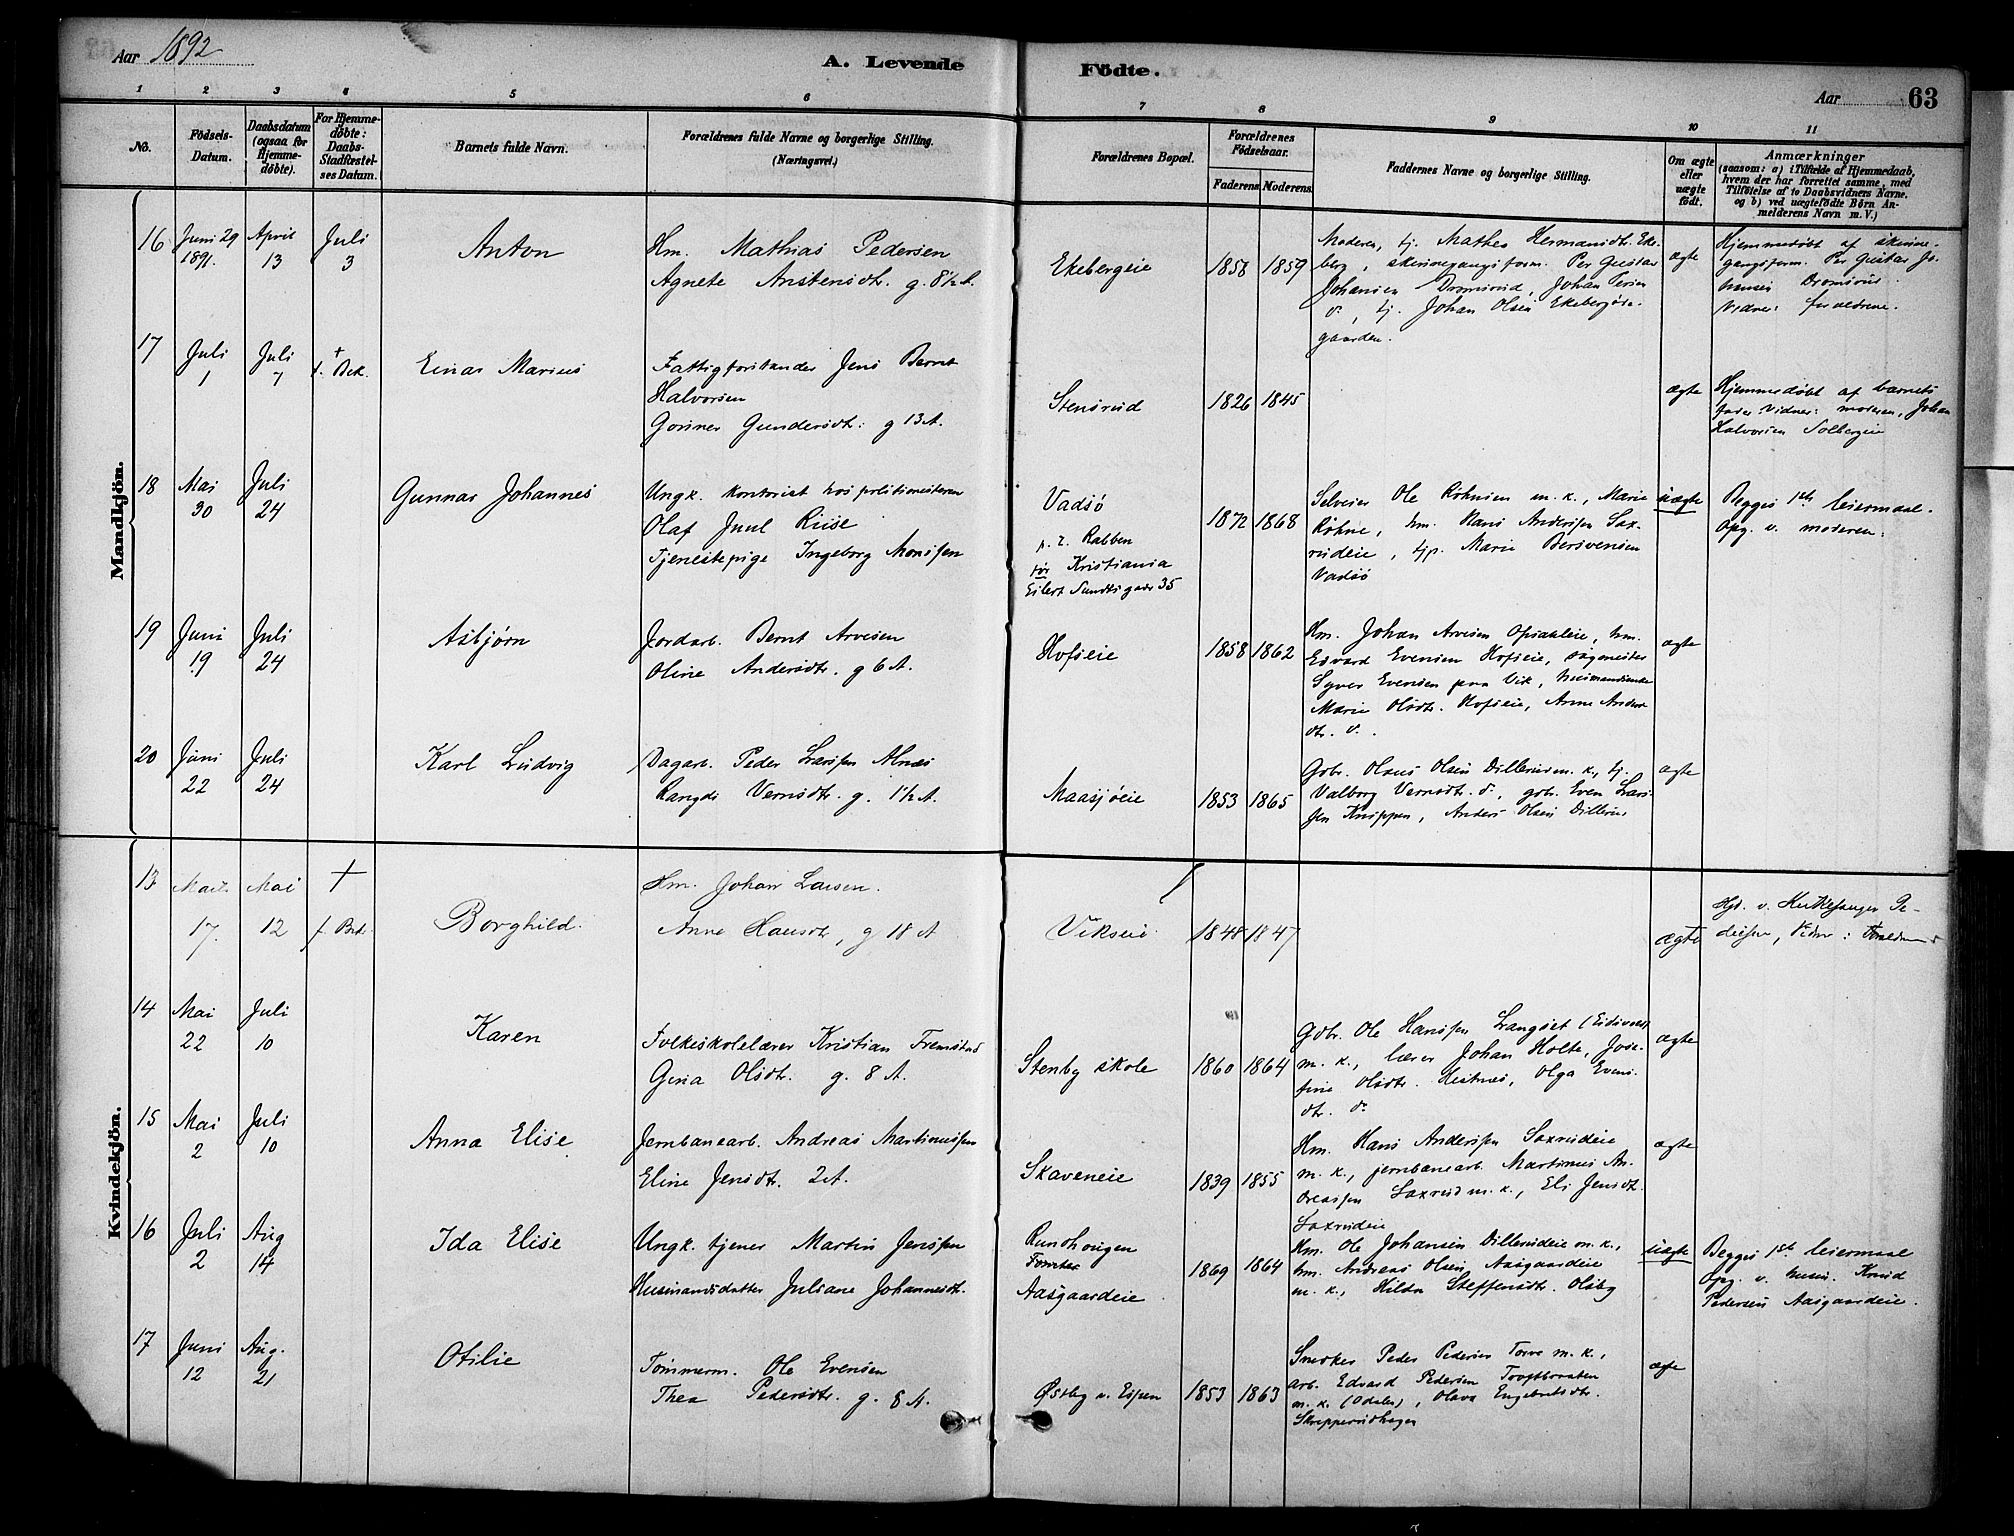 Aar 1892
A. Levende Födte.
Aar 63
1 2 3 4 5 6 7 8 9 10 11
No.
Födsels-Datum.
Daabsdatum (ogsaa for Hjemme-døbte).
For Hjemme-døbte: Daabs-Stadfæstel-ses Datum.
Barnets fulde Navn.
Forældrenes fulde Navne og borgerlige Stilling. (Næringsvei.)
Forældrenes Bopæl.
Forældrenes Födselsaar.
Faderens. Moderens.
Faddernes Navne og borgerlige Stilling.
Om ægte eller uægte födt.
Anmærkninger
(saasom: a) i Tilfælde af Hjemmedaab,
hvem der har forrettet samme, med
Tilføielse af to Daabsvidners Navne.
og b) ved uægtefödte Börn An-
melderens Navn m. V.)
Mandkjön.
16 Juni 29 1891. April 13 Juli 3 Anton
Hm. Mathias Pedersen
Agnete Anstensdtr. g. 8½ A.
Ekebergeie 1858 1859
Moderen, tj. Mathea Hermansdtr. Eke-
berg, skinnegangsform. Per Gustav
Johansen Dromsrud, Johan
tj. Johan Olsen Ekeberg
gaarden.
ægte
Hjemmedøbt af skinne-
gangsform. Per Gustav Jo-
hansen Dromsrud.
Vidner: forældrene.
17 Juli 1 Juli 7 + f. Bek. Einar Marius
Fattigforstander Jens Bernt
Halvorsen
Gorine Gundersdtr: g 13 A.
Stensrud 1826 1845 ægte
Hjemmedøbt af barnets
fader Vidner: moderen, Johan
Halvorsen Solbergeie
18 Mai 30 Juli 24 Gunnar Johannes
Ungk. kontorist hos politimesteren
Olaf Juul Riise
Tjenestepige Ingeborg Monssen
Vadsø
p. t. Rabben
før Kristiania
Eilert Sundts gade 35
1872 1868
Selveier Ole Røhnsen m. k., Marie
Røhne, hm. Hans Anderssen Sax-
rudeie, tjp. Marie Bersvensen
Vadsø
uægte
Begges 1ste leiermaal.
Opg. v. moderen.
19 Juni 19 Juli 24 Asbjørn
Jordarb. Bernt Arvesen
Oline Andersdtr. g 6 A.
Hofseie 1858 1862
Hm. Johan Arvesen Opsaleie, hm.
Edvard Evensen Hofseie, sagmester
Syver Evensen paa Vik, husmandsenke
Marie Olsdtr. Hofseie, Anne Anders
dtr. do.
ægte
20 Juni 22 Juli 24 Karl Ludvig
Dagarb. Peder Larssen Alnæs
Rangdi Vernsdtr. g. 1½ A.
Maasjøeie 1853 1865
Gbr. Olaus Olsen Dillerud m. k., tj.
Valborg Vernsdtr. do., gbr. Even Lars-
sen Knippen, Anders Olsen Dillerud
ægte
Kvindekjön.
13 Marts 17. Mai 12 + f. Bek. Borghild.
Hm. Johan Larsen.
Anne Hansdtr, g 18 A
Vikseie 1848 1847 ægte
Hjd. v. Kirkesanger Pe-
dersen, Vidner: Forældrene
14 Mai 22 Juli 10 Karen
Folkeskolelærer Kristian Fremstad
Gina Olsdtr. g. 8 A.
Stenby skole 1860 1864
Gbr. Ole Hanssen Langset (Eidsvold)
m. k., lærer Johan Holte, Jose-
fine Olsdtr. Hestnes, Olga Evens-
dtr. do
ægte
15 Mai 2 Juli 10 Anna Elise
Jernbanearb. Andreas Martinussen
Eline Jensdtr. 2 A.
Skaveneie 1839 1855
Hm. Hans Anderssen Saxrudeie
m. k., jernbanearb. Martinus An-
dreassen Saxrud m. k., Eli Jensdtr.
Saxrudeie
ægte
16 Juli 2 Aug 14 Ida Elise
Ungk. tjener Martin Jenssen
Husmandsdatter Juliane Johannesdtr.
Rundhougen
Tomter
Aasgaardeie
1869 1864
Hm. Ole Johansen Dillerudeie m. k.,
hm. Andreas Olsen Aasgaardeie
m. k., Hilda Steffensdtr. Olsby
uægte
Begges 1ste leiermaal
Opg. v. husm. Knud
Pedersen Aasgaardeie.
17 Juni 12 Aug. 21 Otilie
Tømmerm. Ole Evensen
Thea Pedersdtr. g. 8 A.
Østby v. Espen 1853 1863
Snedker Peder Pedersen Torve m. k.,
arb. Edvard Pedersen
m. k. (Odalen), Olava Engebretsdtr.
Skrepperudhagen
ægte